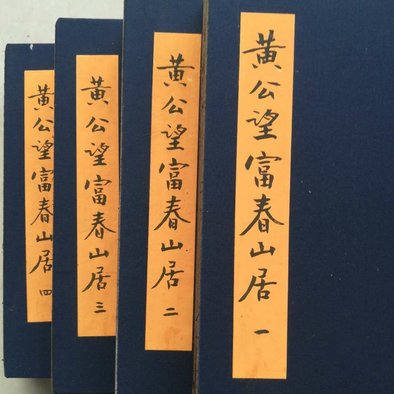 黄公望富春山居 一
黄公望富春山居 二
黄公望富春山居 三
黄公望富春山居 四